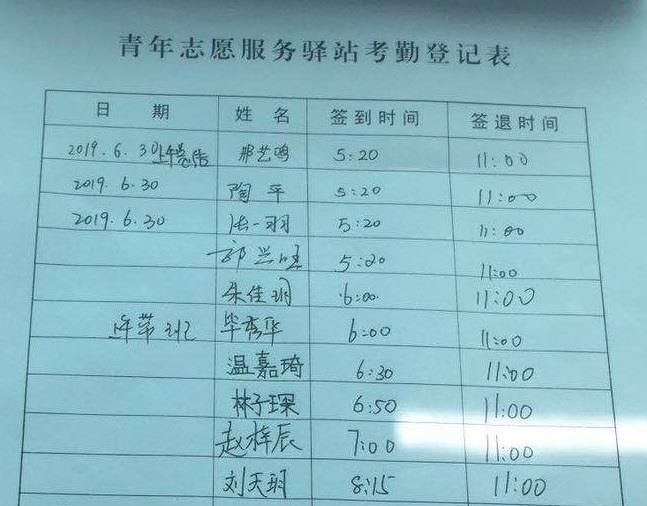 青年志愿服务驿站考勤登记表
日 期 姓 名 签到时间 签退时间
2019.6.30上午总结 邢艺鸣 5:20 11:00
2019.6.30 陶平 5:20 11:00
2019.6.30 张一羽 5:20 11:00
郭兴旺 5:20 11:00
朱佳玥 6:00 11:00
上午带班 毕秀华 6:00 11:00
温嘉琦 6:30 11:00
林子琛 6:50 11:00
赵梓辰 7:00 11:00
刘天玥 8:15 11:00